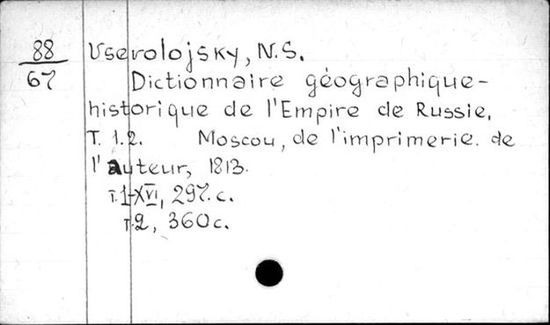 88
67
Vsevolojsky, N.S.
Dictionnaire géographique-
historique de l'Empire de Russie,
T. 1.2. Moscou, de l'imprimerie. de
l'auteur, 1813.
т.1-XVI, 297. с.
т.2, 360 с.